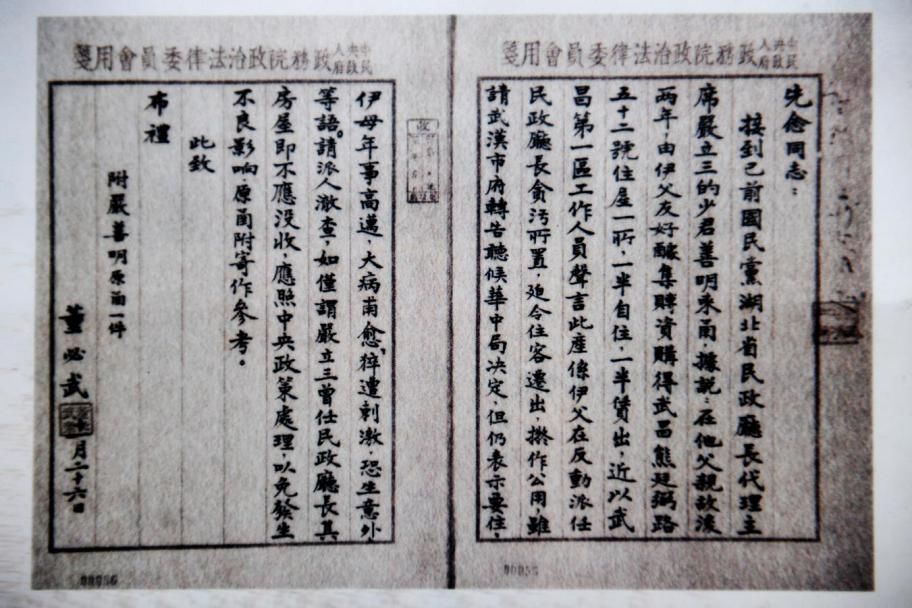 中央人民政府政務院政治法律委員會用箋
先念同志：
接到已前國民黨湖北省民政廳長代理主
席嚴立三的少君善明來函，據說：在他父親故後
两年，由伊父友好醵集賻資購得武昌熊廷弼路
五十二號住屋一所，一半自住，一半賃出，近以武
昌第一區工作人員聲言此產係伊父在反動派任
民政廳長貪污所置，廹令住客遷出撥作公用，雖
請武漢市府轉告聽候華中局决定，但仍表示要住，
00055
中央人民政府政務院政治法律委員會用箋
伊母年事高邁，大病甫愈，猝遭刺激，恐生意外，
等語。請派人澈查，如僅謂嚴立三曾任民政廳長其
房屋即不應没收，應照中央政策處理，以免發生
不良影响。原函附寄作參考。
此致
布禮
附嚴善明原函一件
董必武
月二十六日
00056